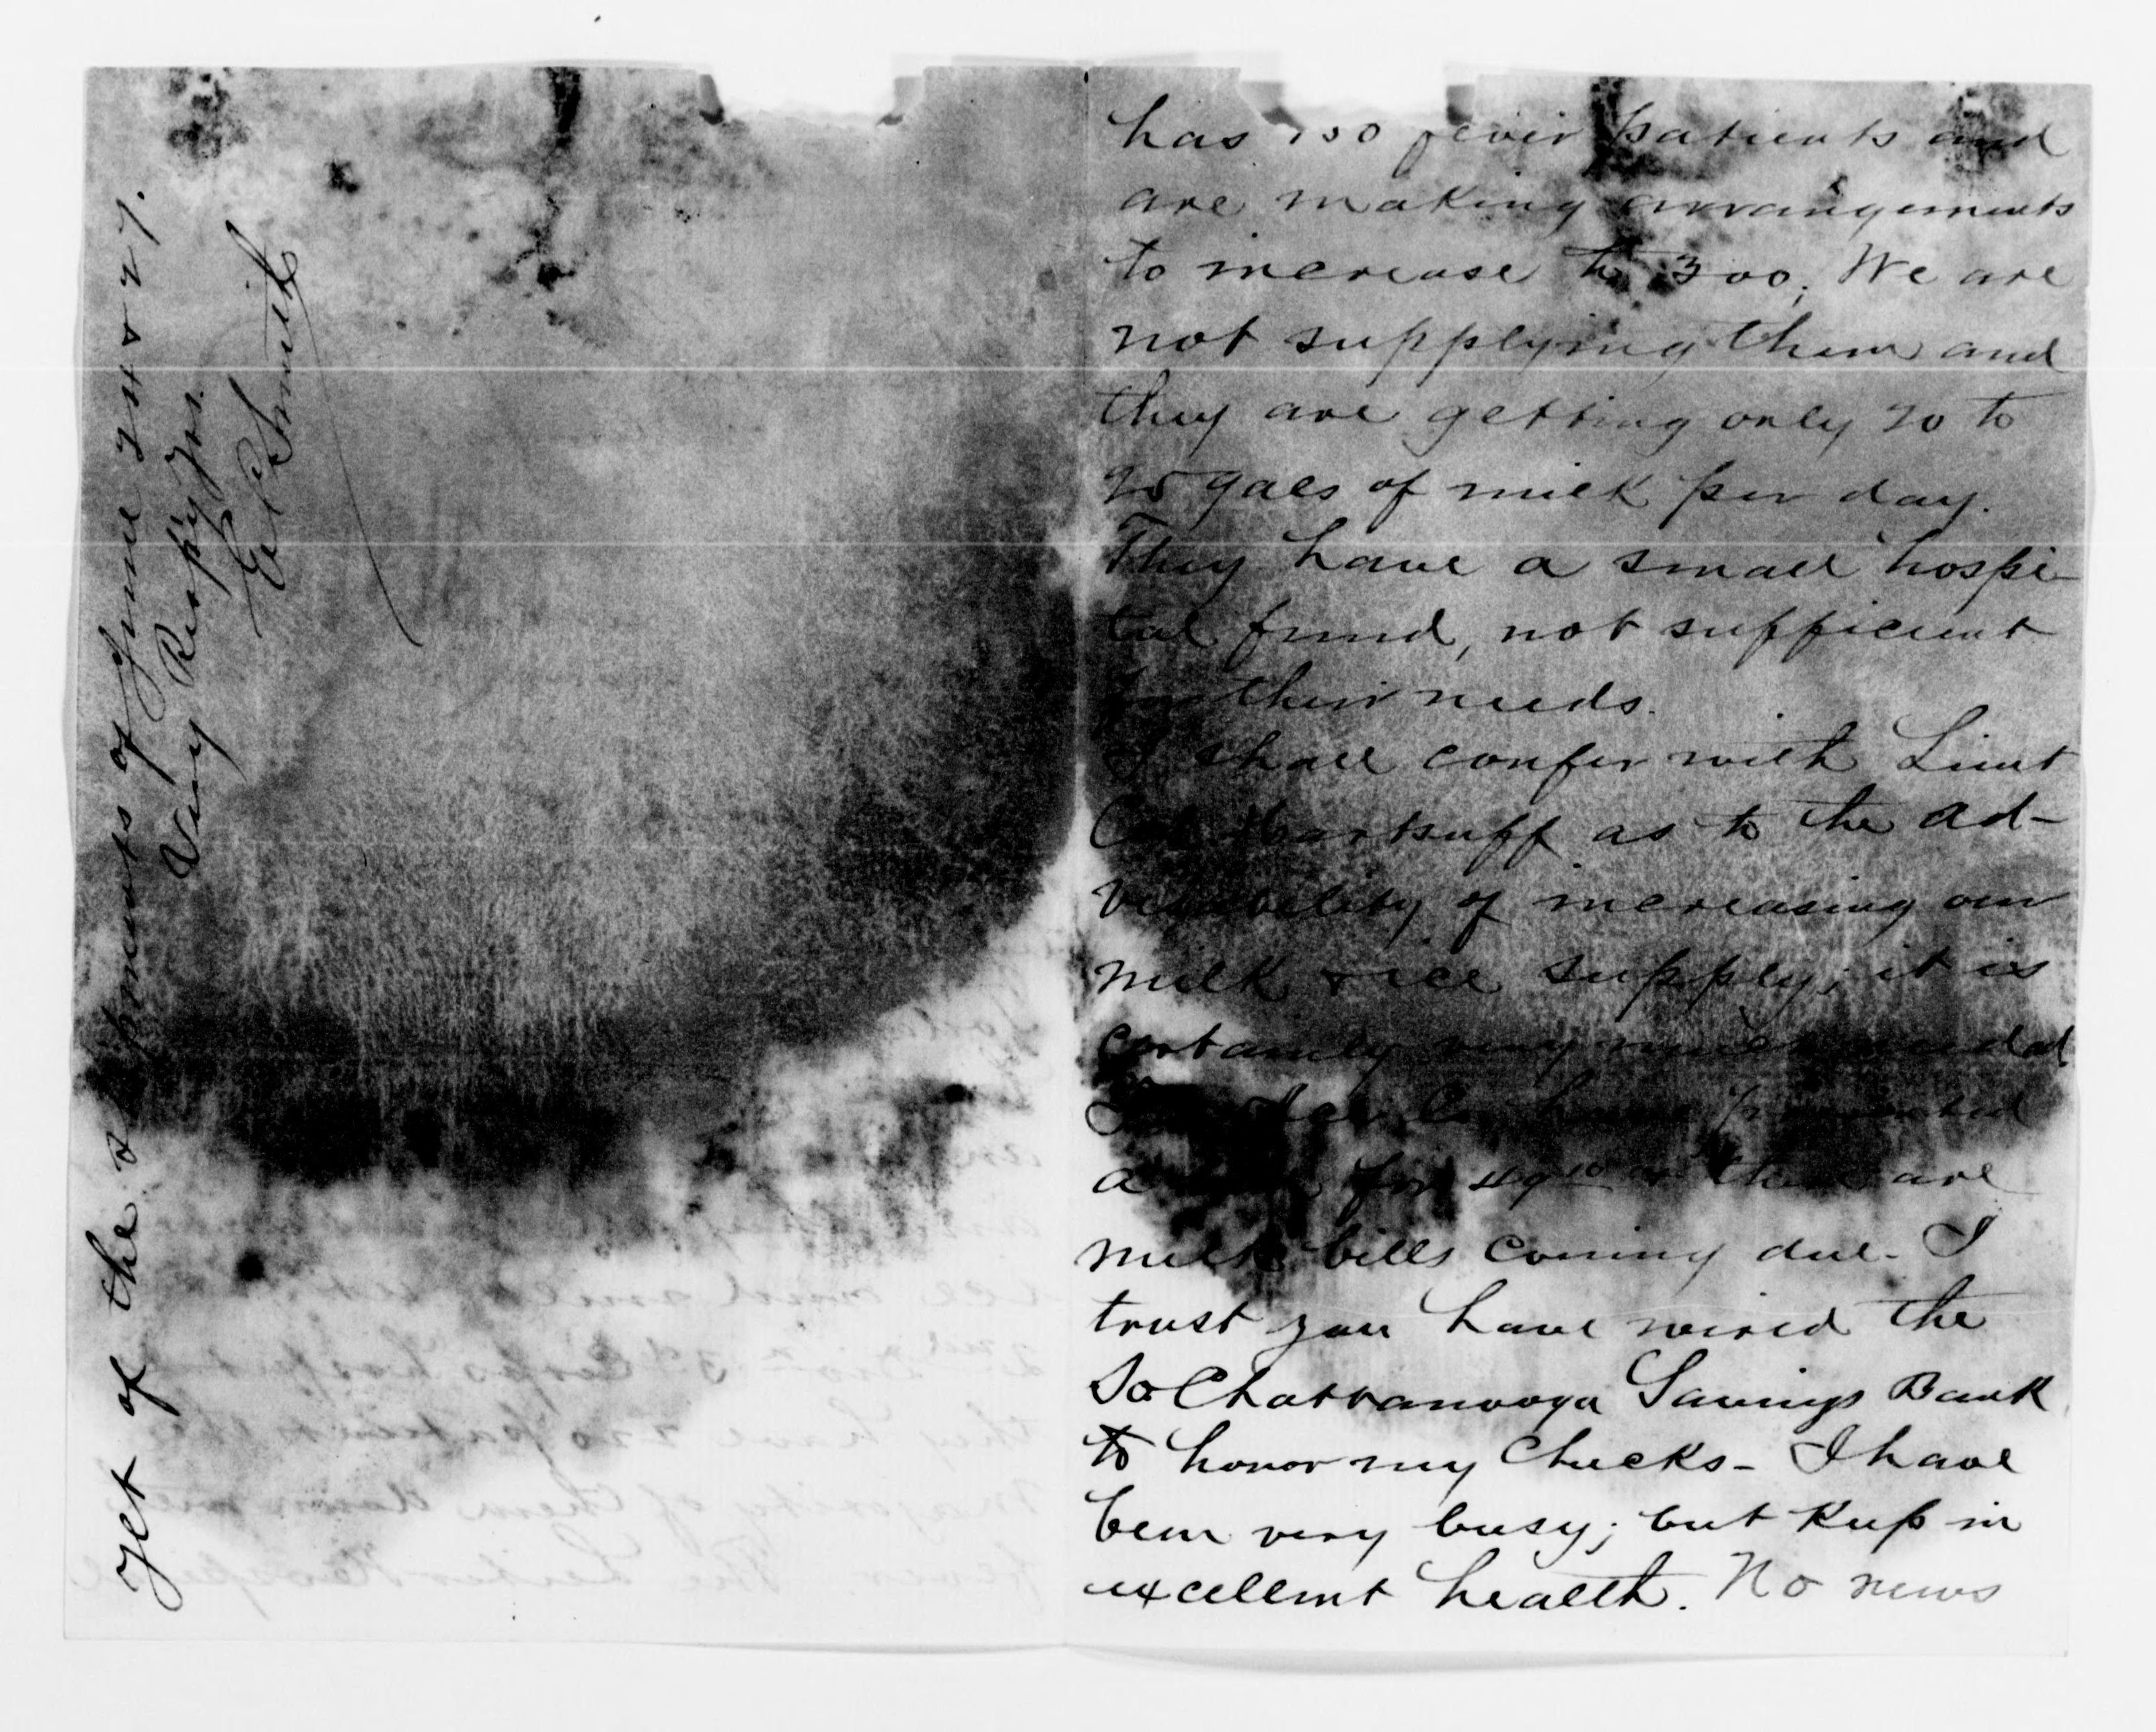 has 150 fever patients and
are making arrangements
to increase to 300; We are
not supplying them and
they are getting only 20 to
25 gals of milk per day.
They have a small hospi-
tal fund, not sufficient
for their needs.
I shall confer with Lieut
Col Hartsuff as to the ad-
visability of increasing our
milk & ice supply; it is
certainly very much needed
have presented
a for & there are
milk bills coming due - I
trust you have wired the
So Chattanooga Savings Bank
to honor my Checks - I have
been very busy; but keep in
excellent health. No news
yet of the shipments of June 24 & 27.
Very Respy Yrs.
E R Smith